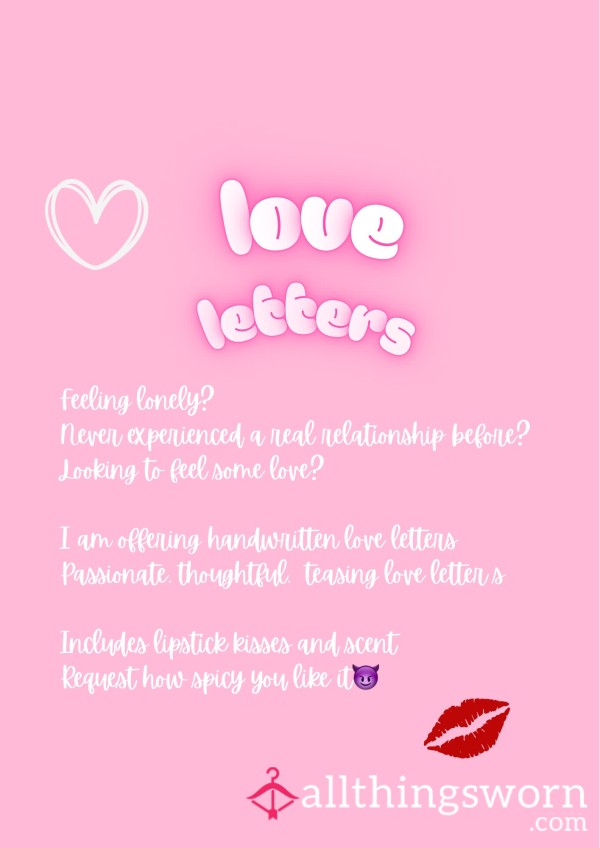 love
letters
Feeling lonely?
Never experienced a real relationship before?
Looking to feel some love?
I am offering handwritten love letters
Passionate, thoughtful, teasing love letter s
Includes lipstick kisses and scent
Request how spicy you like it😈
allthingsworn
.com